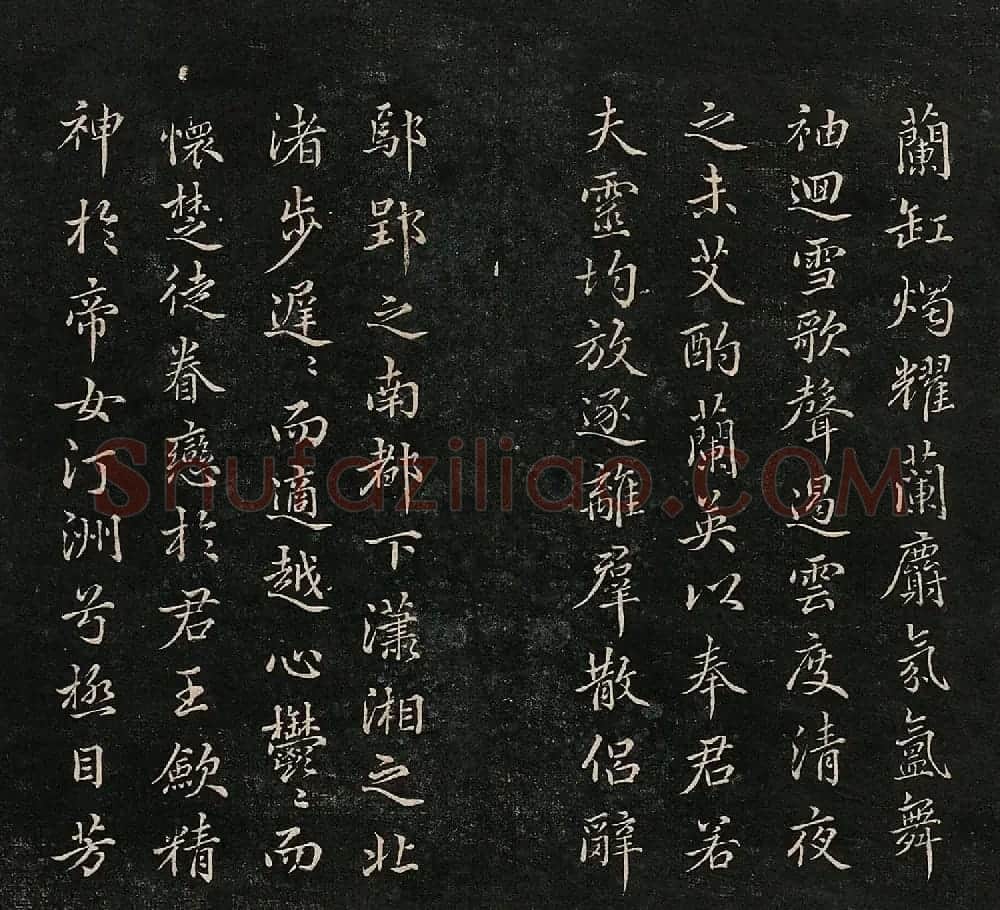 蘭缸燭耀蘭麝氛氳舞
袖迴雪歌聲遏雲度清夜
之未艾酌蘭英以奉君若
夫靈均放逐離羣散侶辭
鄢郢之南都下瀟湘之北
渚步遲〻而適越心鬱〻而
懷楚徒眷戀於君王歛精
神於帝女汀洲兮極目芳
Shufaziliao.COM